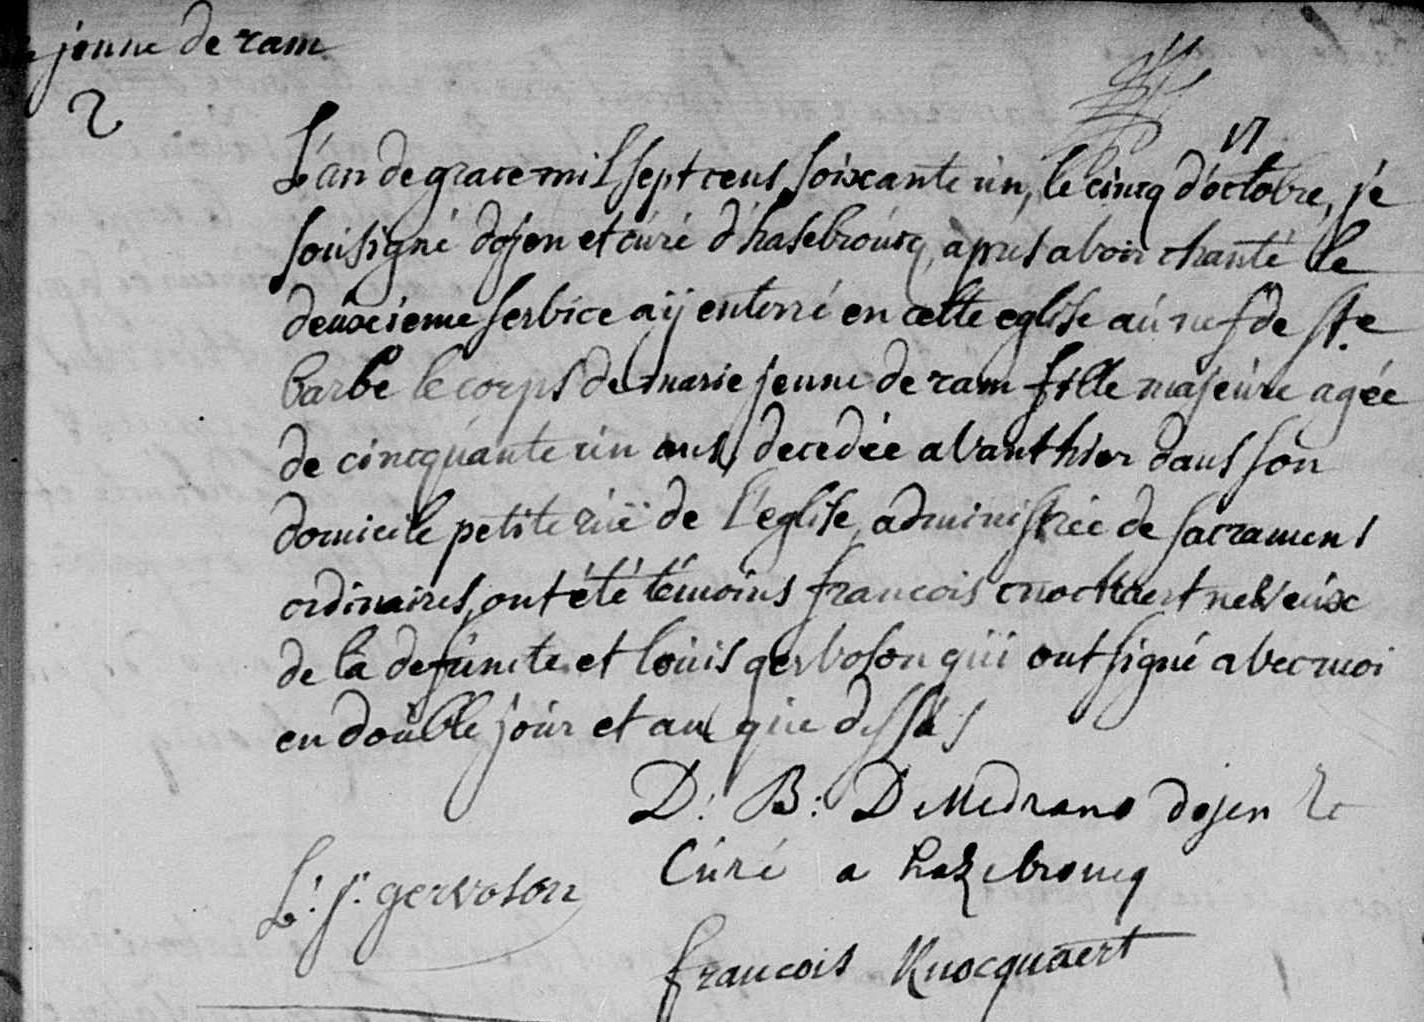 jenne de ram
2
17
L'an de grace mil sept cens soixante un, le cincq d'octobre, je
sousigné dojen et curé d'hasebroucq, apres avoir chanté le
deuxieme service aÿ enterré en cette eglise au nef de Ste
barbe le corps de marie jenne de ram fille majeure agée
de cincquante un ans, decedée avanthier dans son
domicile petite ruë de l'eglise, administrée de sacramens
ordinaires, ont été témoins francois cnockaert neveux
de la defuncte et louis gervoson qui ont signé avec moi
en double jour et an que dessus
D. B. DeMedrano dojen &
Curé a hazebroucq
L. J. gervoson
francois Knocquaert